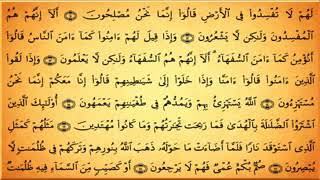 لَهُمْ لَا تُفْسِدُوا۟ فِى ٱلْأَرْضِ قَالُوٓا۟ إِنَّمَا نَحْنُ مُصْلِحُونَ ۝ أَلَآ إِنَّهُمْ هُمُ
ٱلْمُفْسِدُونَ وَلَٰكِن لَّا يَشْعُرُونَ ۝ وَإِذَا قِيلَ لَهُمْ ءَامِنُوا۟ كَمَآ ءَامَنَ ٱلنَّاسُ قَالُوٓا۟
أَنُؤْمِنُ كَمَآ ءَامَنَ ٱلسُّفَهَآءُ ۗ أَلَآ إِنَّهُمْ هُمُ ٱلسُّفَهَآءُ وَلَٰكِن لَّا يَعْلَمُونَ ۝ وَإِذَا
لَقُوا۟ ٱلَّذِينَ ءَامَنُوا۟ قَالُوٓا۟ ءَامَنَّا وَإِذَا خَلَوْا۟ إِلَىٰ شَيَٰطِينِهِمْ قَالُوٓا۟ إِنَّا مَعَكُمْ إِنَّمَا نَحْنُ
مُسْتَهْزِءُونَ ۝ ٱللَّهُ يَسْتَهْزِئُ بِهِمْ وَيَمُدُّهُمْ فِى طُغْيَٰنِهِمْ يَعْمَهُونَ ۝ أُو۟لَٰٓئِكَ ٱلَّذِينَ
ٱشْتَرَوُا۟ ٱلضَّلَٰلَةَ بِٱلْهُدَىٰ فَمَا رَبِحَت تِّجَٰرَتُهُمْ وَمَا كَانُوا۟ مُهْتَدِينَ ۝ مَثَلُهُمْ كَمَثَلِ
ٱلَّذِى ٱسْتَوْقَدَ نَارًا فَلَمَّآ أَضَآءَتْ مَا حَوْلَهُۥ ذَهَبَ ٱللَّهُ بِنُورِهِمْ وَتَرَكَهُمْ فِى ظُلُمَٰتٍ لَّا
يُبْصِرُونَ ۝ صُمٌّۢ بُكْمٌ عُمْىٌ فَهُمْ لَا يَرْجِعُونَ ۝ أَوْ كَصَيِّبٍ مِّنَ ٱلسَّمَآءِ فِيهِ ظُلُمَٰتٌ